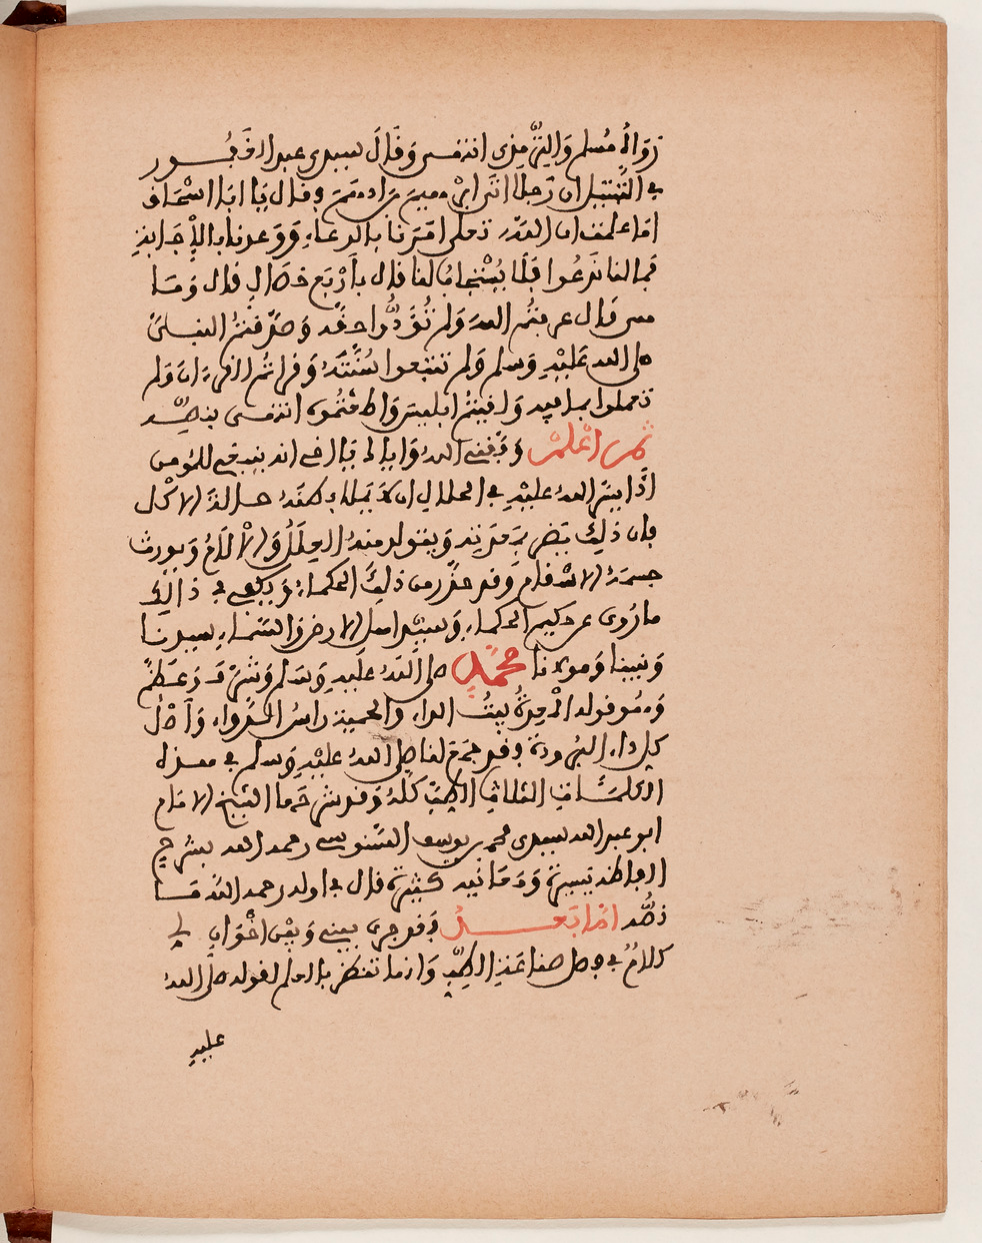 رواه مسلم والترمذي انتهى وقال سيدي عبد الغفور
في التنبيه ان رجلا اتى ابرهيم بن ادهم وقال يا ابا اسحاف
اما علمت ان الله تعلى امرنا بالدعاء ووعدنا بالإجابة
فما لنا ندعوا فلا يستجاب لنا فال بأربع خصال فال وما
هي فال عرفتم الله ولم تؤدوا حفه وصدفتم النبي
صلى الله عليه وسلم ولم تتبعوا سنته وفرأتم الفرءان ولم
تعملوا بما فيه ولفيتم ابليس واطعتموه انتهى بنصه
ثم اعلم وفقني الله وإياك انه ينبغي للمومن
اذا يسر الله عليه في الحلال ان لا يملا بطنه حالة الاكل
فان ذلك يضر بمعدته ويتولد منه العلل والآلام ويورث
جسمه الاسفام وفد حذر من ذلك الحكماء ويكفي في ذالك
ما روي عن حكيم الحكماء وسيد اهل الارض والسماء سيدنا
ونبينا ومولانا محمد صلى الله عليه وسلم وشرف وعظم
وهو فوله المعدة بيت الداء والحمية راس الدواء وأصل
كل داء البرودة وفد جمع لنا صلى الله عليه وسلم في هذه
الكلمات الثلاث الطب كله وفد شرحها الشيخ الامام
ابو عبد الله سيدي محمد بن يوسف السنوسي رحمه الله بشرح
الفاظه يسيرة ومعانيه كثيرة فال في اوله رحمه الله ما
نصه اما بعد ففد جرى بيني وبين اخوان لي
كلام في فضل صناعة الطب وانها تفضل بالعلم لفوله صلى الله
عليه